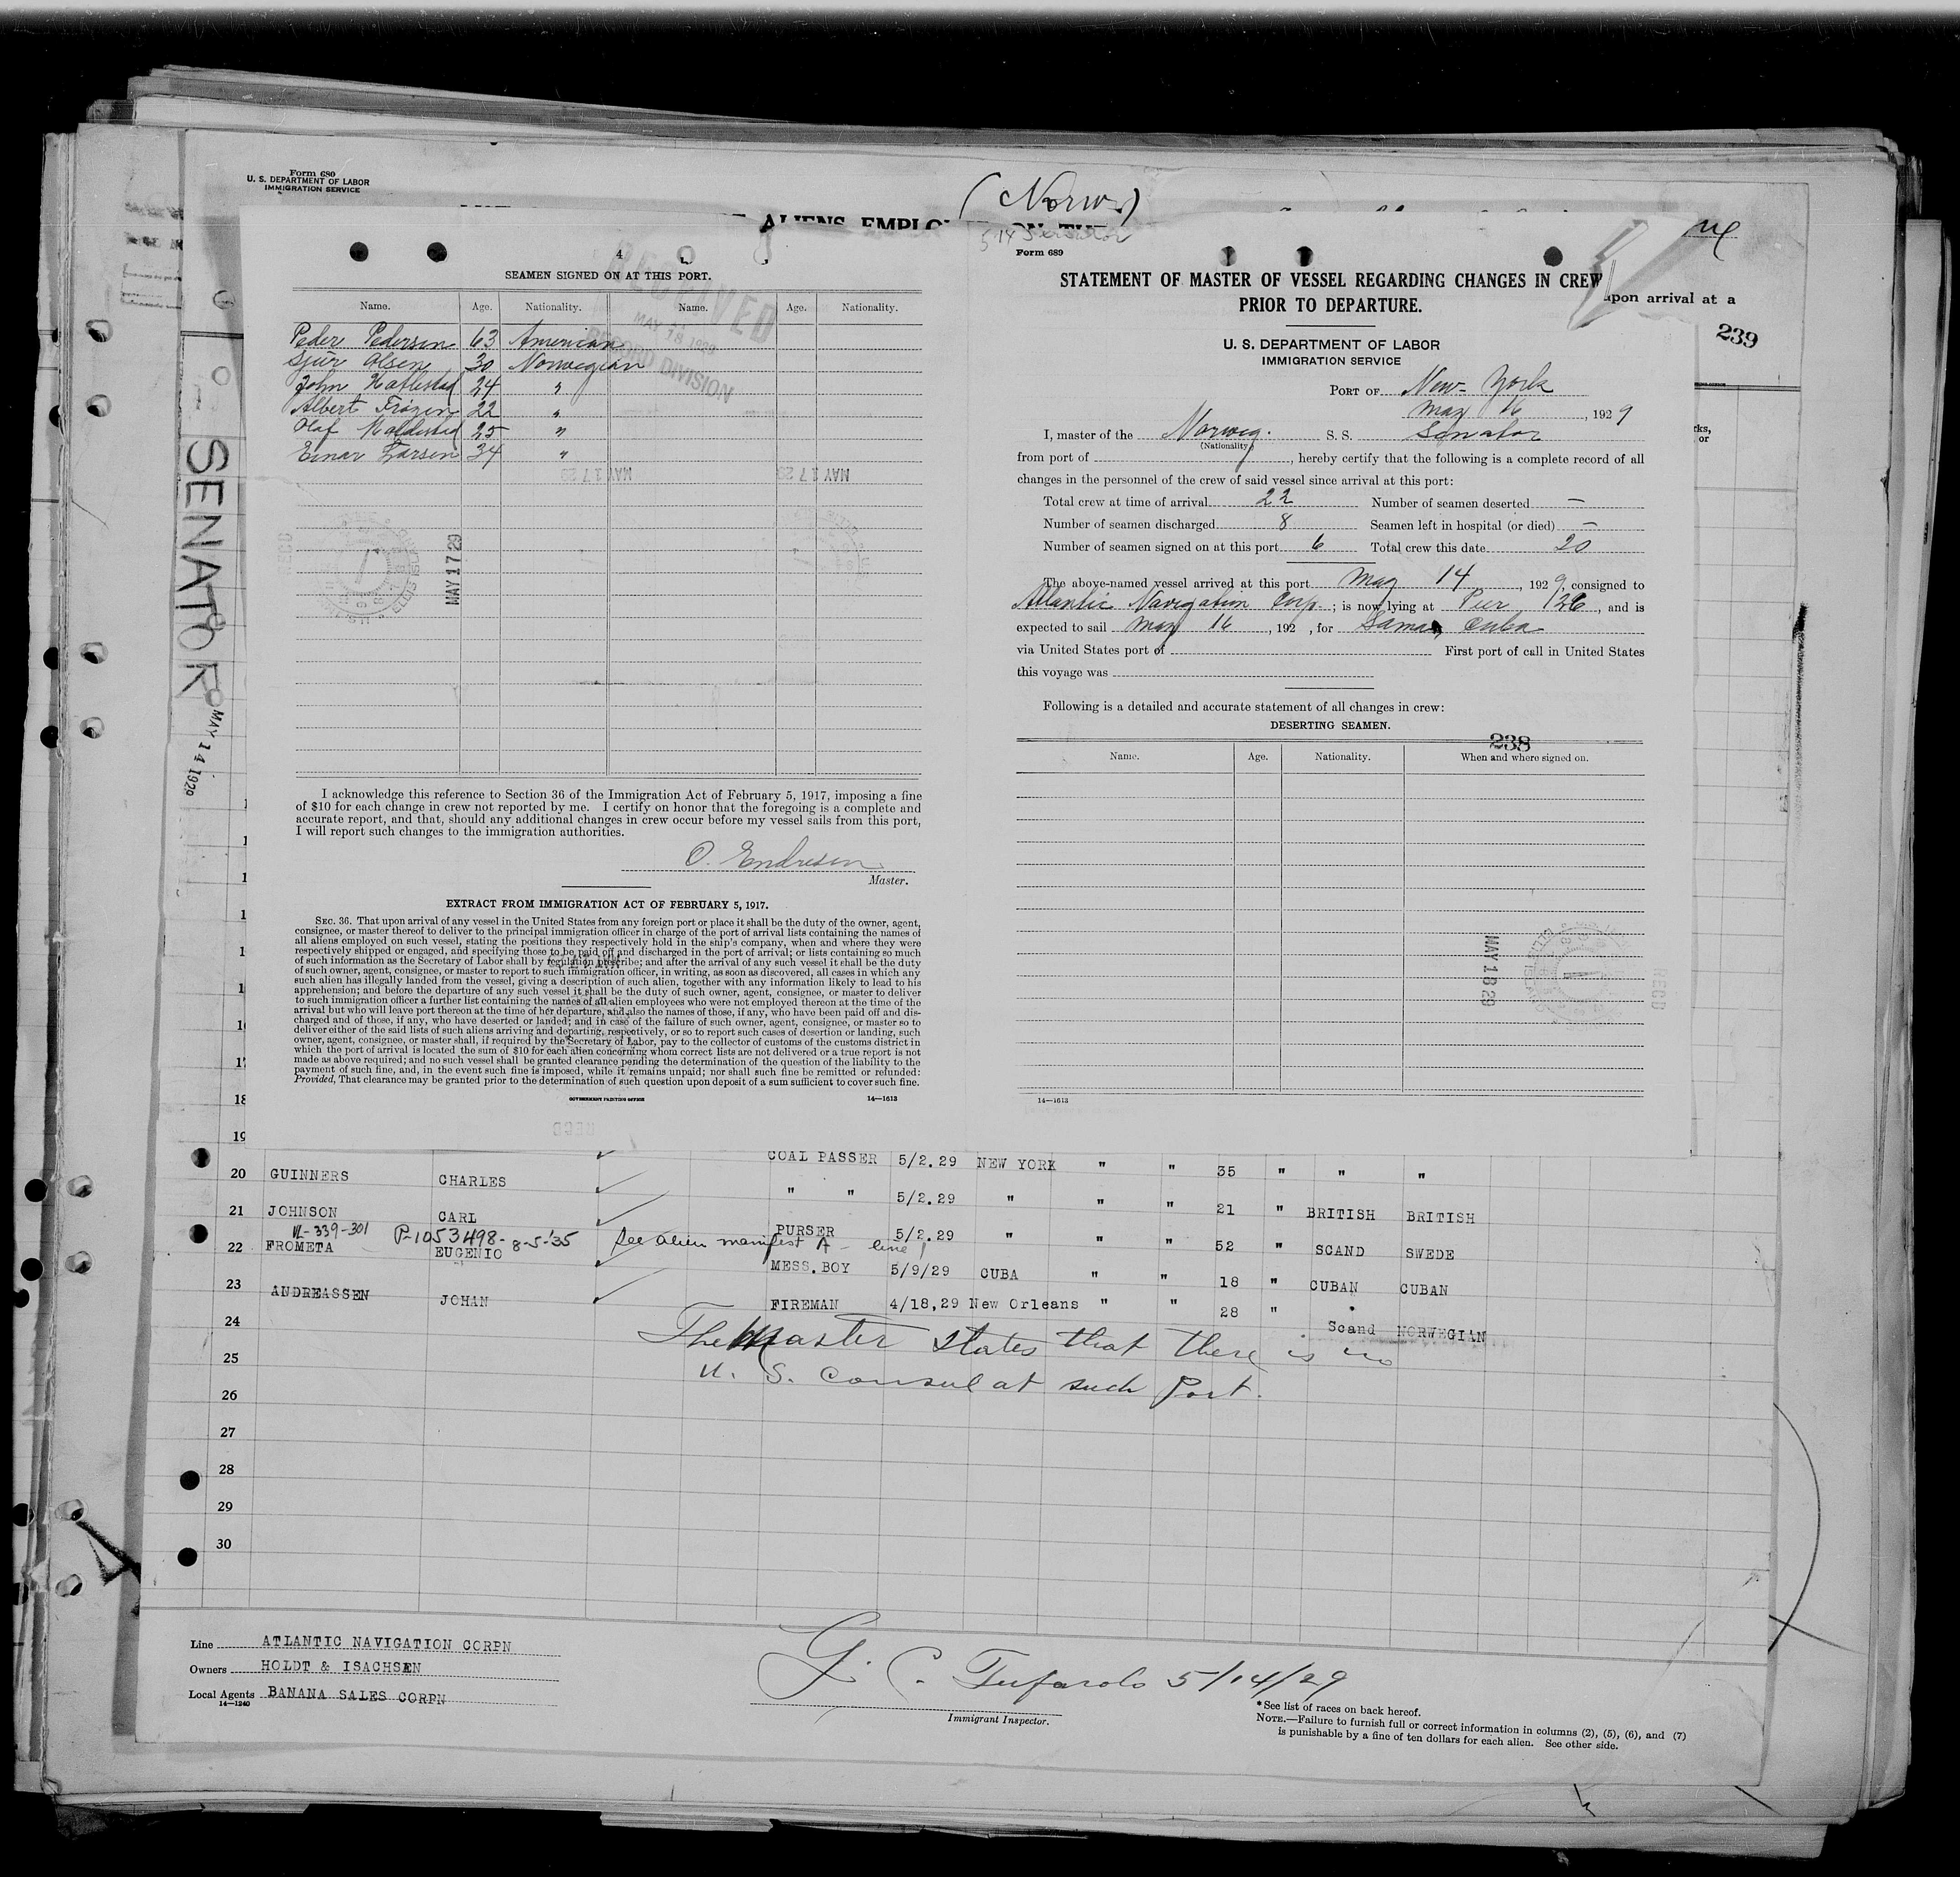 Form 680
U. S. DEPARTMENT OF LABOR
IMMIGRATION SERVICE
(Norw.)
ALIENS EMPLO
upon arrival at a
239
SENATOR
MAY 14 1929
4
SEAMEN SIGNED ON AT THIS PORT.
RECEIVED
MAY 18 1929
RECORD DIVISION
Name. Age. Nationality. Name. Age. Nationality.
Peder Pedersen 63 American
Sjur Olsen 30 Norwegian
John 24 "
Albert 22 "
Olaf 25 "
Einar Larsen 34 "
MAY 17 29
MAY 17 29
MAY 17 29
I acknowledge this reference to Section 36 of the Immigration Act of February 5, 1917, imposing a fine
of $10 for each change in crew not reported by me. I certify on honor that the foregoing is a complete and
accurate report, and that, should any additional changes in crew occur before my vessel sails from this port,
I will report such changes to the immigration authorities.
O. Endresen
Master.
EXTRACT FROM IMMIGRATION ACT OF FEBRUARY 5, 1917.
SEC. 36. That upon arrival of any vessel in the United States from any foreign port or place it shall be the duty of the owner, agent,
consignee, or master thereof to deliver to the principal immigration officer in charge of the port of arrival lists containing the names of
all aliens employed on such vessel, stating the positions they respectively hold in the ship's company, when and where they were
respectively shipped or engaged, and specifying those to be paid off and discharged in the port of arrival; or lists containing so much
of such information as the Secretary of Labor shall by regulation prescribe; and after the arrival of any such vessel it shall be the duty
of such owner, agent, consignee, or master to report to such immigration officer, in writing, as soon as discovered, all cases in which any
such alien has illegally landed from the vessel, giving a description of such alien, together with any information likely to lead to his
apprehension; and before the departure of any such vessel it shall be the duty of such owner, agent, consignee, or master to deliver
to such immigration officer a further list containing the names of all alien employees who were not employed thereon at the time of the
arrival but who will leave port thereon at the time of her departure, and also the names of those, if any, who have been paid off and dis-
charged and of those, if any, who have deserted or landed; and in case of the failure of such owner, agent, consignee, or master so to
deliver either of the said lists of such aliens arriving and departing, respectively, or so to report such cases of desertion or landing, such
owner, agent, consignee, or master shall, if required by the Secretary of Labor, pay to the collector of customs of the customs district in
which the port of arrival is located the sum of $10 for each alien concerning whom correct lists are not delivered or a true report is not
made as above required; and no such vessel shall be granted clearance pending the determination of the question of the liability to the
payment of such fine, and, in the event such fine is imposed, while it remains unpaid; nor shall such fine be remitted or refunded:
Provided, That clearance may be granted prior to the determination of such question upon deposit of a sum sufficient to cover such fine.
GOVERNMENT PRINTING OFFICE 14—1613
Form 689
STATEMENT OF MASTER OF VESSEL REGARDING CHANGES IN CREW
PRIOR TO DEPARTURE.
U. S. DEPARTMENT OF LABOR
IMMIGRATION SERVICE
PORT OF New-York
May 16, 1929
I, master of the Norweg. S. S. Senator
(Nationality)
from port of , hereby certify that the following is a complete record of all
changes in the personnel of the crew of said vessel since arrival at this port:
Total crew at time of arrival 22 Number of seamen deserted —
Number of seamen discharged 8 Seamen left in hospital (or died) —
Number of seamen signed on at this port 6 Total crew this date 20
The above-named vessel arrived at this port May 14, 1929, consigned to
Atlantic Navigation Corp; is now lying at Pier 26, and is
expected to sail May 16, 192 , for Sama, Cuba
via United States port of First port of call in United States
this voyage was
Following is a detailed and accurate statement of all changes in crew:
DESERTING SEAMEN.
238
Name. Age. Nationality. When and where signed on.
MAY 18 29
RECD
14—1613
18
19
COAL PASSER 5/2.29 NEW YORK " " 35 " " "
20 GUINNERS CHARLES " " 5/2.29 " " " 21 " BRITISH BRITISH
21 JOHNSON CARL PURSER 5/2.29 " " " 52 " SCAND SWEDE
VL-339-301 P-1053498- 8-5-35 See alien manifest A - line 1
22 FROMETA EUGENIO MESS.BOY 5/9/29 CUBA " " 18 " CUBAN CUBAN
23 ANDREASSEN JOHAN FIREMAN 4/18,29 New Orleans " " 28 " Scand NORWEGIAN
24 The Master states that there is no
25 U. S. Consul at such Port.
26
27
28
29
30
Line ATLANTIC NAVIGATION CORPN
Owners HOLDT & ISACHSEN
Local Agents BANANA SALES CORPN
14—1240
G. C. Tufarolo 5/14/29
Immigrant Inspector.
*See list of races on back hereof.
NOTE.—Failure to furnish full or correct information in columns (2), (5), (6), and (7)
is punishable by a fine of ten dollars for each alien. See other side.